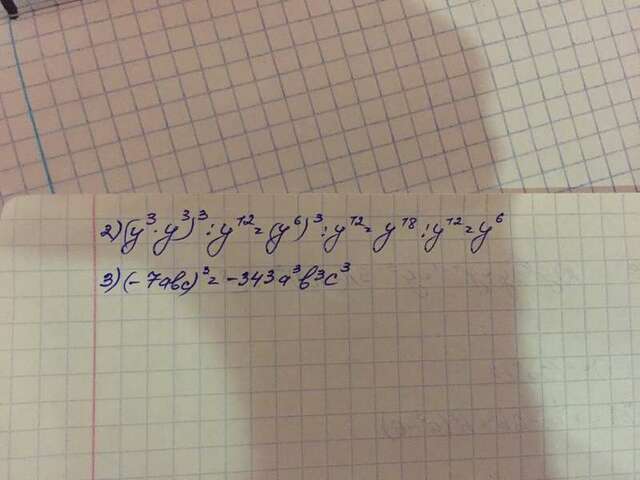 2) (y³ · y³)³ : y¹² = (y⁶)³ : y¹² = y¹⁸ : y¹² = y⁶
3) (-7abc)³ = -343a³b³c³